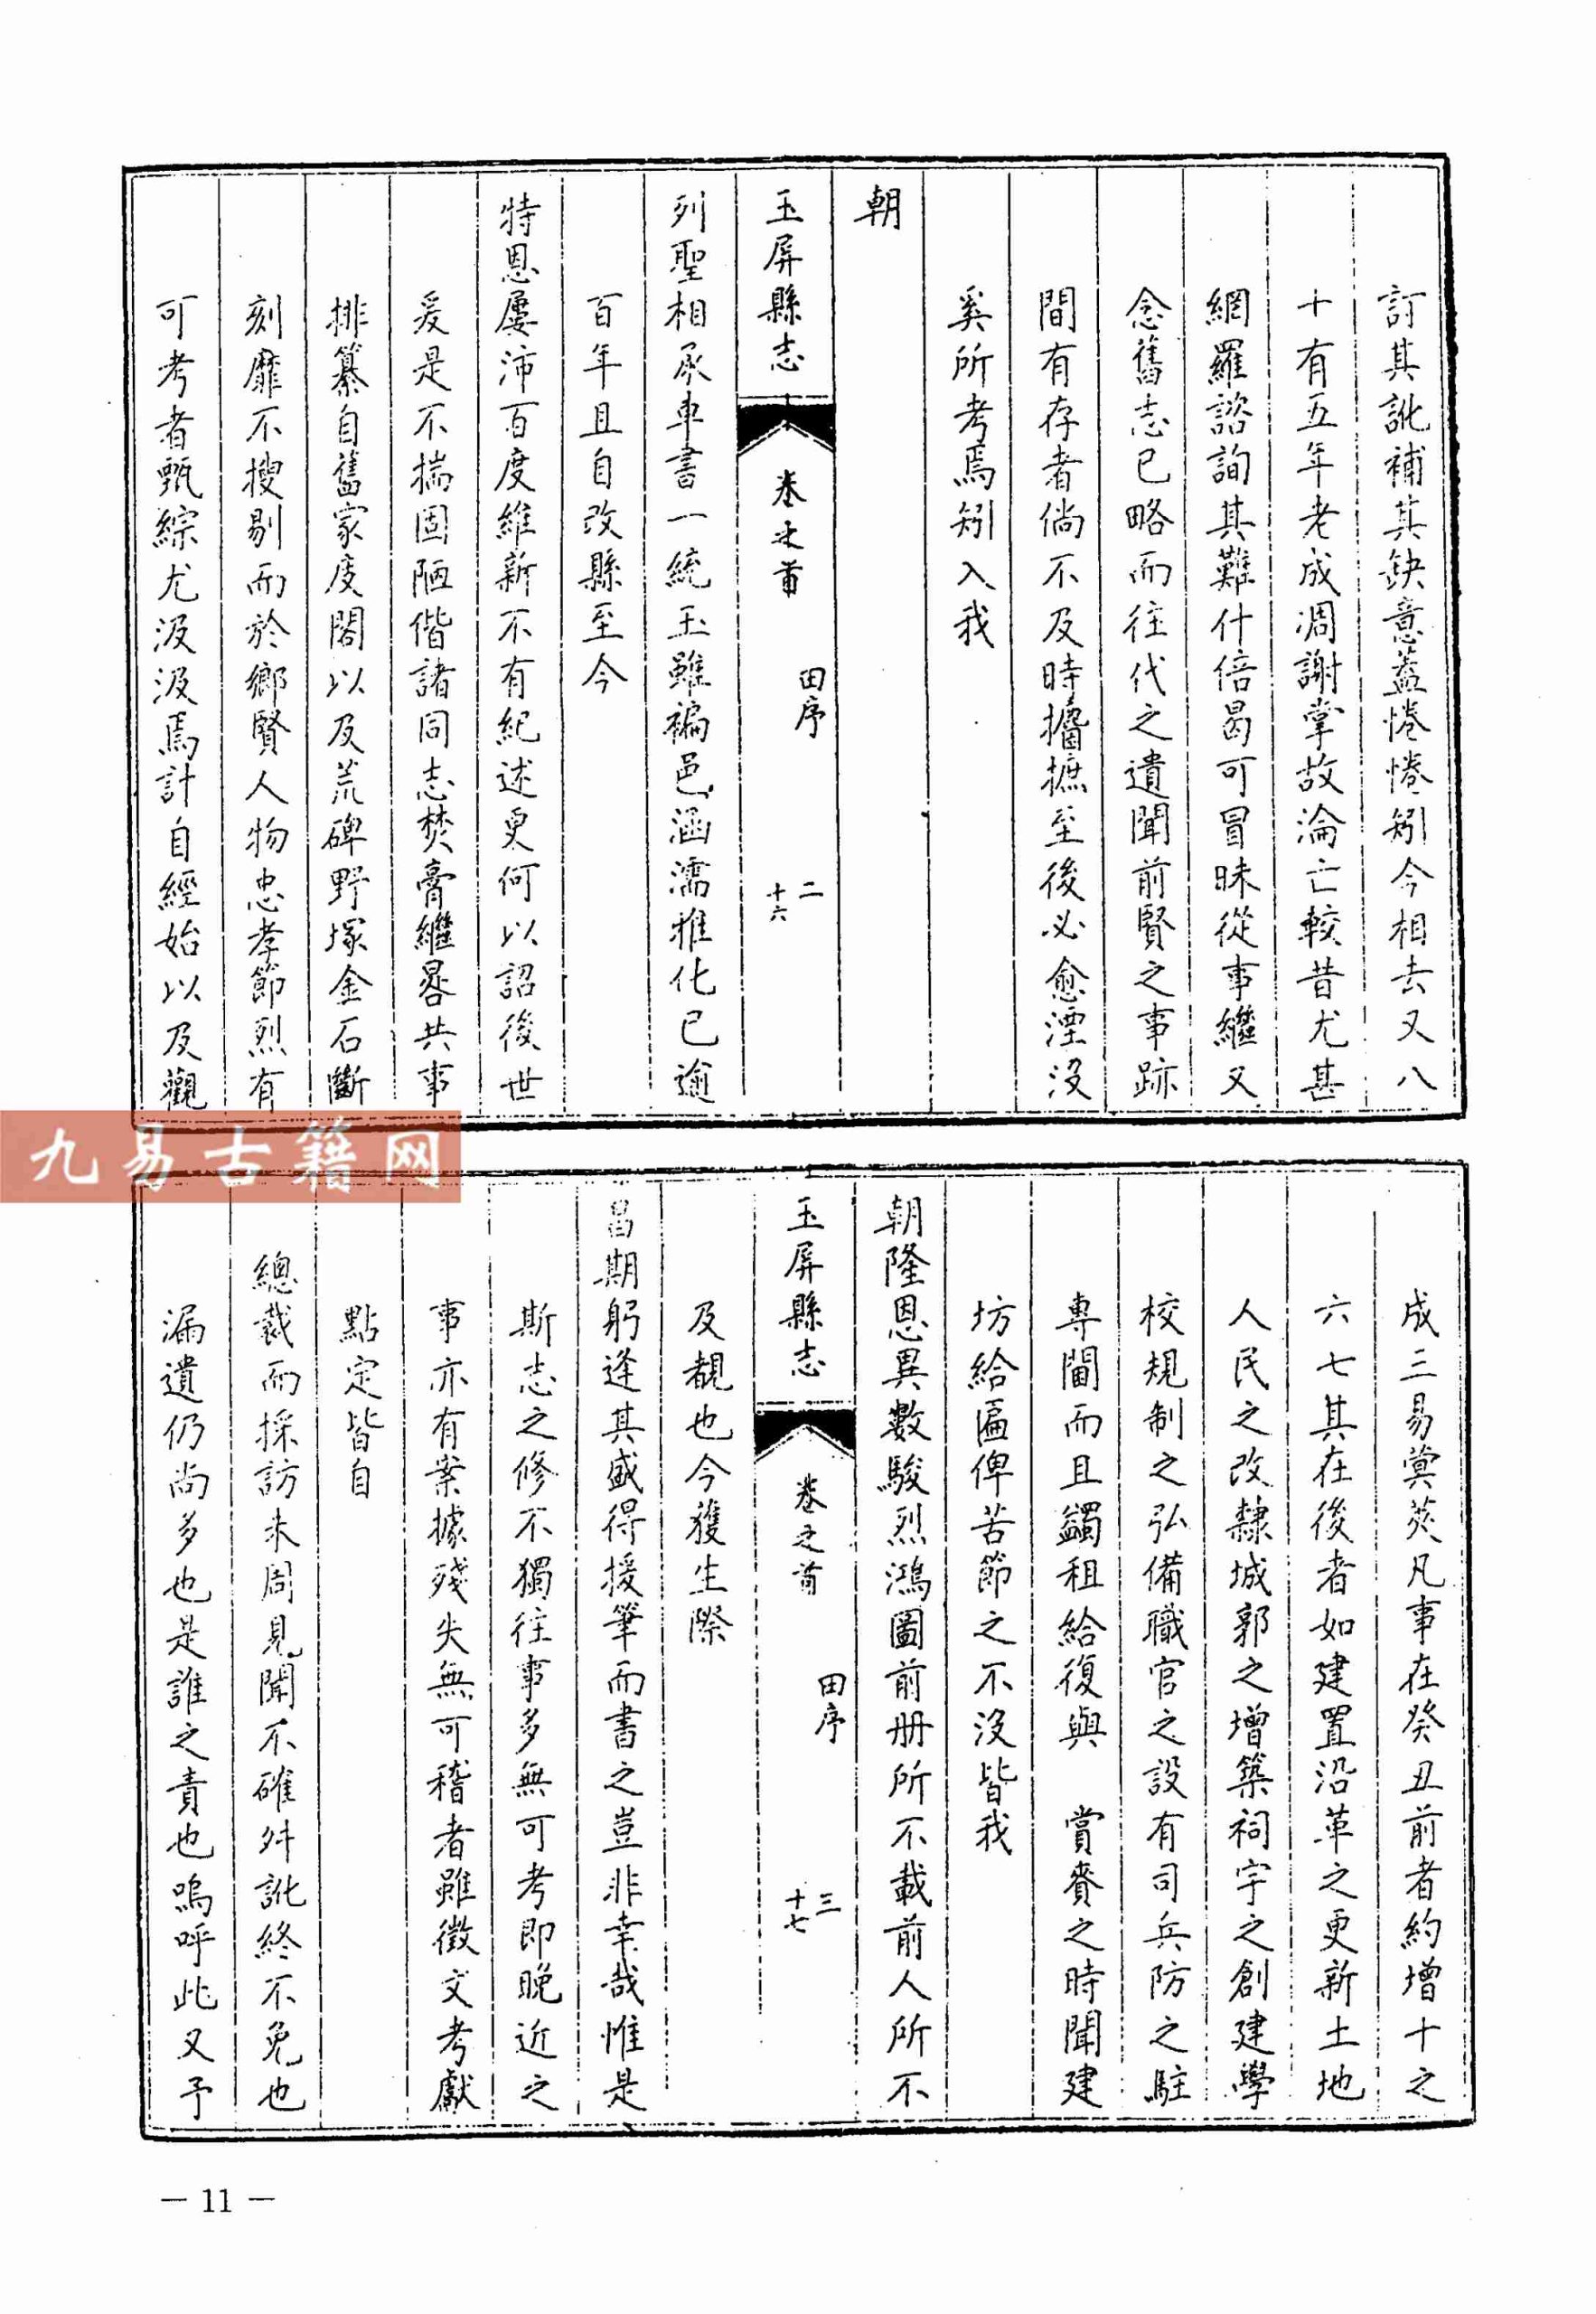 訂其訛補其缺意蓋惓惓矧今相去又八
十有五年老成凋謝掌故淪亡較昔尤甚
網羅諮詢其難什倍曷可冒昧從事繼又
念舊志已略而往代之遺聞前賢之事跡
間有存者倘不及時攟摭至後必愈湮沒
奚所考焉矧入我
朝
玉屏縣志 卷之首 田序 二 十六
列聖相承車書一統玉雖褊邑涵濡雅化已逾
百年且自改縣至今
特恩屢沛百度維新不有紀述更何以詔後世
爰是不揣固陋偕諸同志焚膏繼晷共事
排纂自舊家庋閣以及荒碑野塚金石斷
刻靡不搜剔而於鄉賢人物忠孝節烈有
可考者甄綜尤汲汲焉計自經始以及觀
成三易蓂莢凡事在癸丑前者約增十之
六七其在後者如建置沿革之更新土地
人民之改隸城郭之增築祠宇之創建學
校規制之弘備職官之設有司兵防之駐
專閫而且蠲租給復與 賞賚之時聞建
坊給匾俾苦節之不沒皆我
朝隆恩異數駿烈鴻圖前册所不載前人所不
玉屏縣志 卷之首 田序 三 十七
及覩也今獲生際
昌期躬逢其盛得援筆而書之豈非幸哉惟是
斯志之修不獨往事多無可考即晚近之
事亦有案據殘失無可稽者雖徵文考獻
點定皆自
總裁而採訪未周見聞不確舛訛終不免也
漏遺仍尚多也是誰之責也嗚呼此又予
— 11 —
九易古籍网